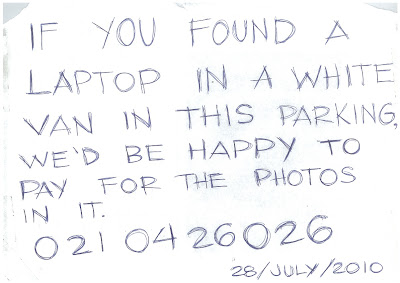 IF YOU FOUND A
LAPTOP IN A WHITE
VAN IN THIS PARKING,
WE'D BE HAPPY TO
PAY FOR THE PHOTOS
IN IT.
021 0426026
28/JULY/2010